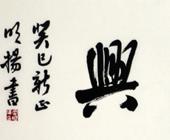 興
癸巳新正
明揚書